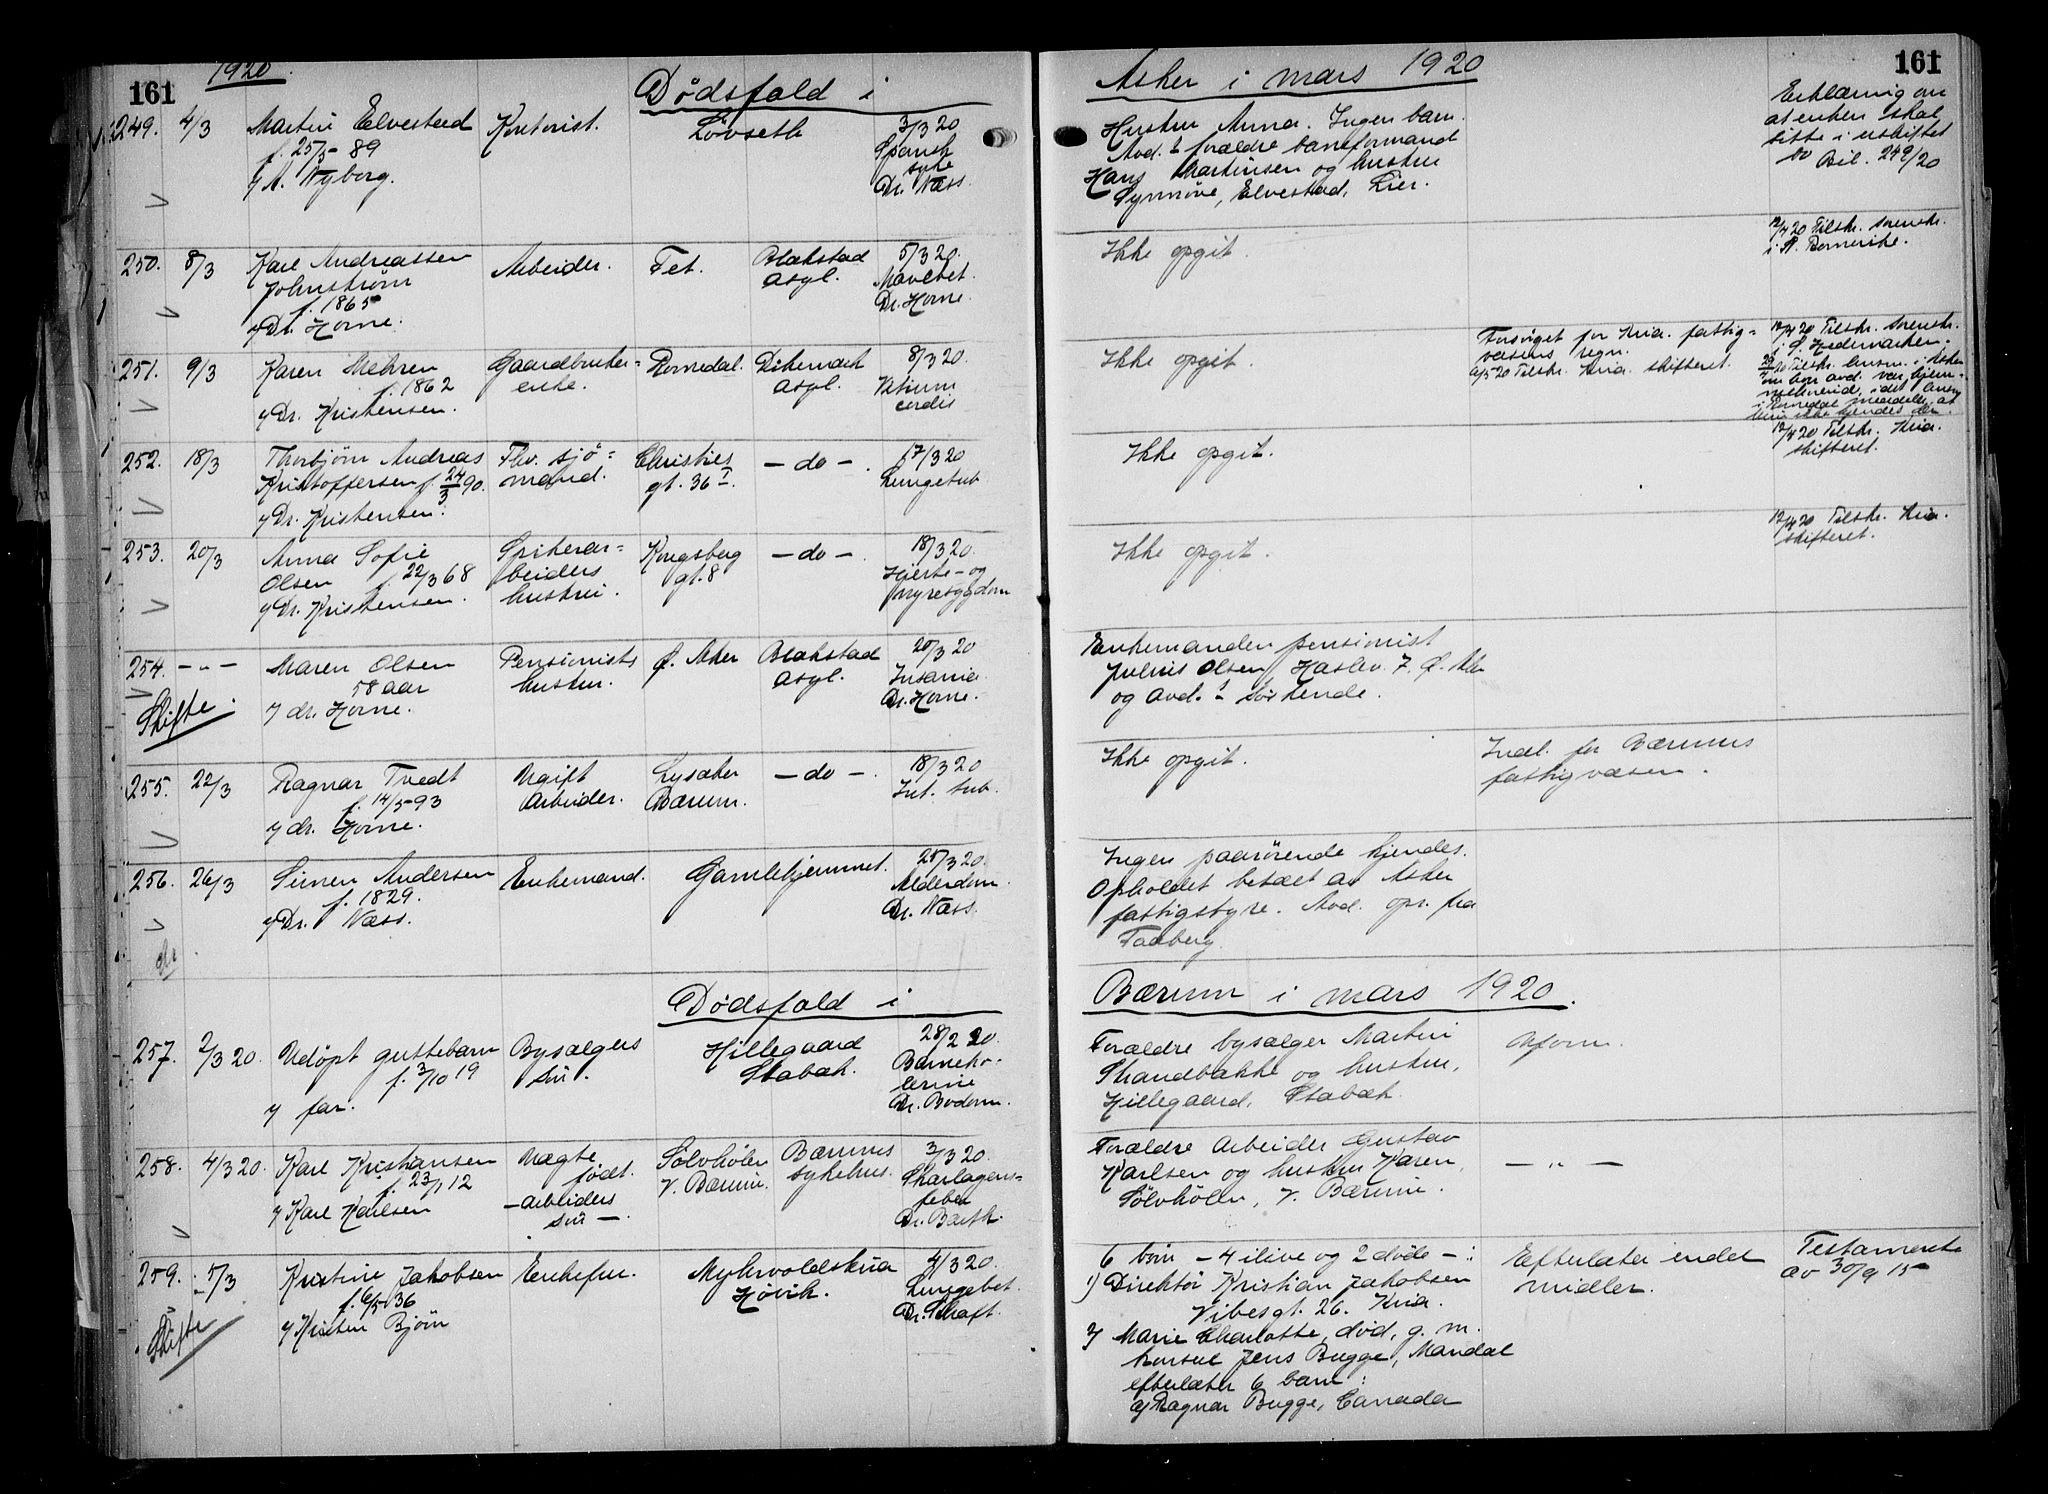 161
1920
Dødsfald i
Asker i mars 1920
161
249. 4/3 Martin Elvestad Kontorist. Løvseth 3/3 20
f. 25/5-89 Spansk
syke
v/ A. Nyborg. Dr. Næss.
Hustru Anna. Ingen barn.
Avd.s forældre banformand
Hans Martinsen og hustru
Synnøve, Elvestad, Lier.
Erklæring om
at enken skal
sitte i uskiftet
bo Bil. 249/20
250. 8/3 Karl Andreassen Arbeider. Fet. Blakstad 5/3 20.
Johnstrøm asyl. Mavebet.
f. 1865 Dr. Horne.
v/ Dr. Horne.
Ikke opgit.
12/4 20 Tilskr. sorenskr.
i N. Romerike.
251. 9/3 Karen Mehren Gaardbruker= Romedal. Dikemark 8/3 20.
f. 1862 enke. asyl. Vitium
v/ Dr. Kristensen. cordis
Ikke opgit.
Forsørget for Kria. fattig=
væsens regn.
Tilskr. Kria. skifteret.
12/4 20 Tilskr. sorenskr.
i S. Hedemarken.
i Romedal meddeler at
hun ikke kjendes der.
252. 18/3 Thorbjørn Andreas Fhv. sjø= Christies - do - . 17/3 20
Kristoffersen f. 24/3 90. mand. gt. 36 I Lungetub
v/ Dr. Kristensen.
Ikke opgit.
12/4 20 Tilskr. Kria.
skifteret.
253. 20/3 Anna Sofie Spikerar= Kongsberg - do - . 18/3 20.
Olsen f. 22/3 68 beiders gt. 8 Hjerte- og
v/ Dr. Kristensen. hustru. nyresygdom
Ikke opgit.
12/4 20 Tilskr. Kria.
skifteret.
254. - „ - Maren Olsen Pensionists Ø. Aker Blakstad 20/3 20
58 aar hustru. asyl. Insania
v/ dr. Horne. Dr. Horne.
Skifte.
Enkemanden pensionist
Julius Olsen, Haslev. 7. Ø. Aker
og avd.s søskende.
255. 22/3 Ragnar Tvedt Ugift Lysaker - do - . 18/3 20
f. 14/5-93 arbeider. Bærum. Int. tub.
v/ dr. Horne.
Ikke opgit.
Indl. for Bærums
fattigvæsen.
256. 26/3 Simen Andersen Enkemand. Gamlehjemmet. 25/3 20.
f. 1829. Alderdom.
v/ Dr. Næss. Dr. Næss.
Ingen paarørende kjendes.
Opholdet betalt av Asker
fattigstyre. Avd. opr. fra
Faaberg.
Dødsfald i
Bærum i mars 1920.
257. 2/3 20. Udøpt guttebarn Bysælgers Hillegaard 28/2 20.
f. 3/10 19 søn. Stabæk. Barneko-
lerine
v/ far. Dr. Bodom.
Forældre bysælger Martin
Strandbakke og hustru,
Hillegaard, Stabæk.
Uform.
258. 4/3 20. Karl Kristiansen Uægte Sølvhølen Bærums 3/3 20.
f. 23/1 12 født. V. Bærum. sykehus. Skarlagens-
v/ Karl Karlsen - arbeiders feber
søn - . Dr. Barth.
Forældre arbeider Gustav
Karlsen og hustru Karen,
Sølvhølen, V. Bærum.
- „ -
259. 5/3 Kristine Jakobsen Enkefru. Myhrvoldskria 4/3 20.
f. 6/5 36 Høvik. Lungebet.
v/ Kristen Bjørn Dr. Skaft.
Skifte
6 børn - 4 ilive og 2 døde - :
1) Direktør Kristian Jakobsen
Vibesgt. 26. Kria.
2) Marie Charlotte, død, g. m.
konsul Jens Bugge, Mandal
efterlater 6 barn:
a) Ragnar Bugge, Canada
Efterlater endel
midler.
Testamente
av 30/9 15